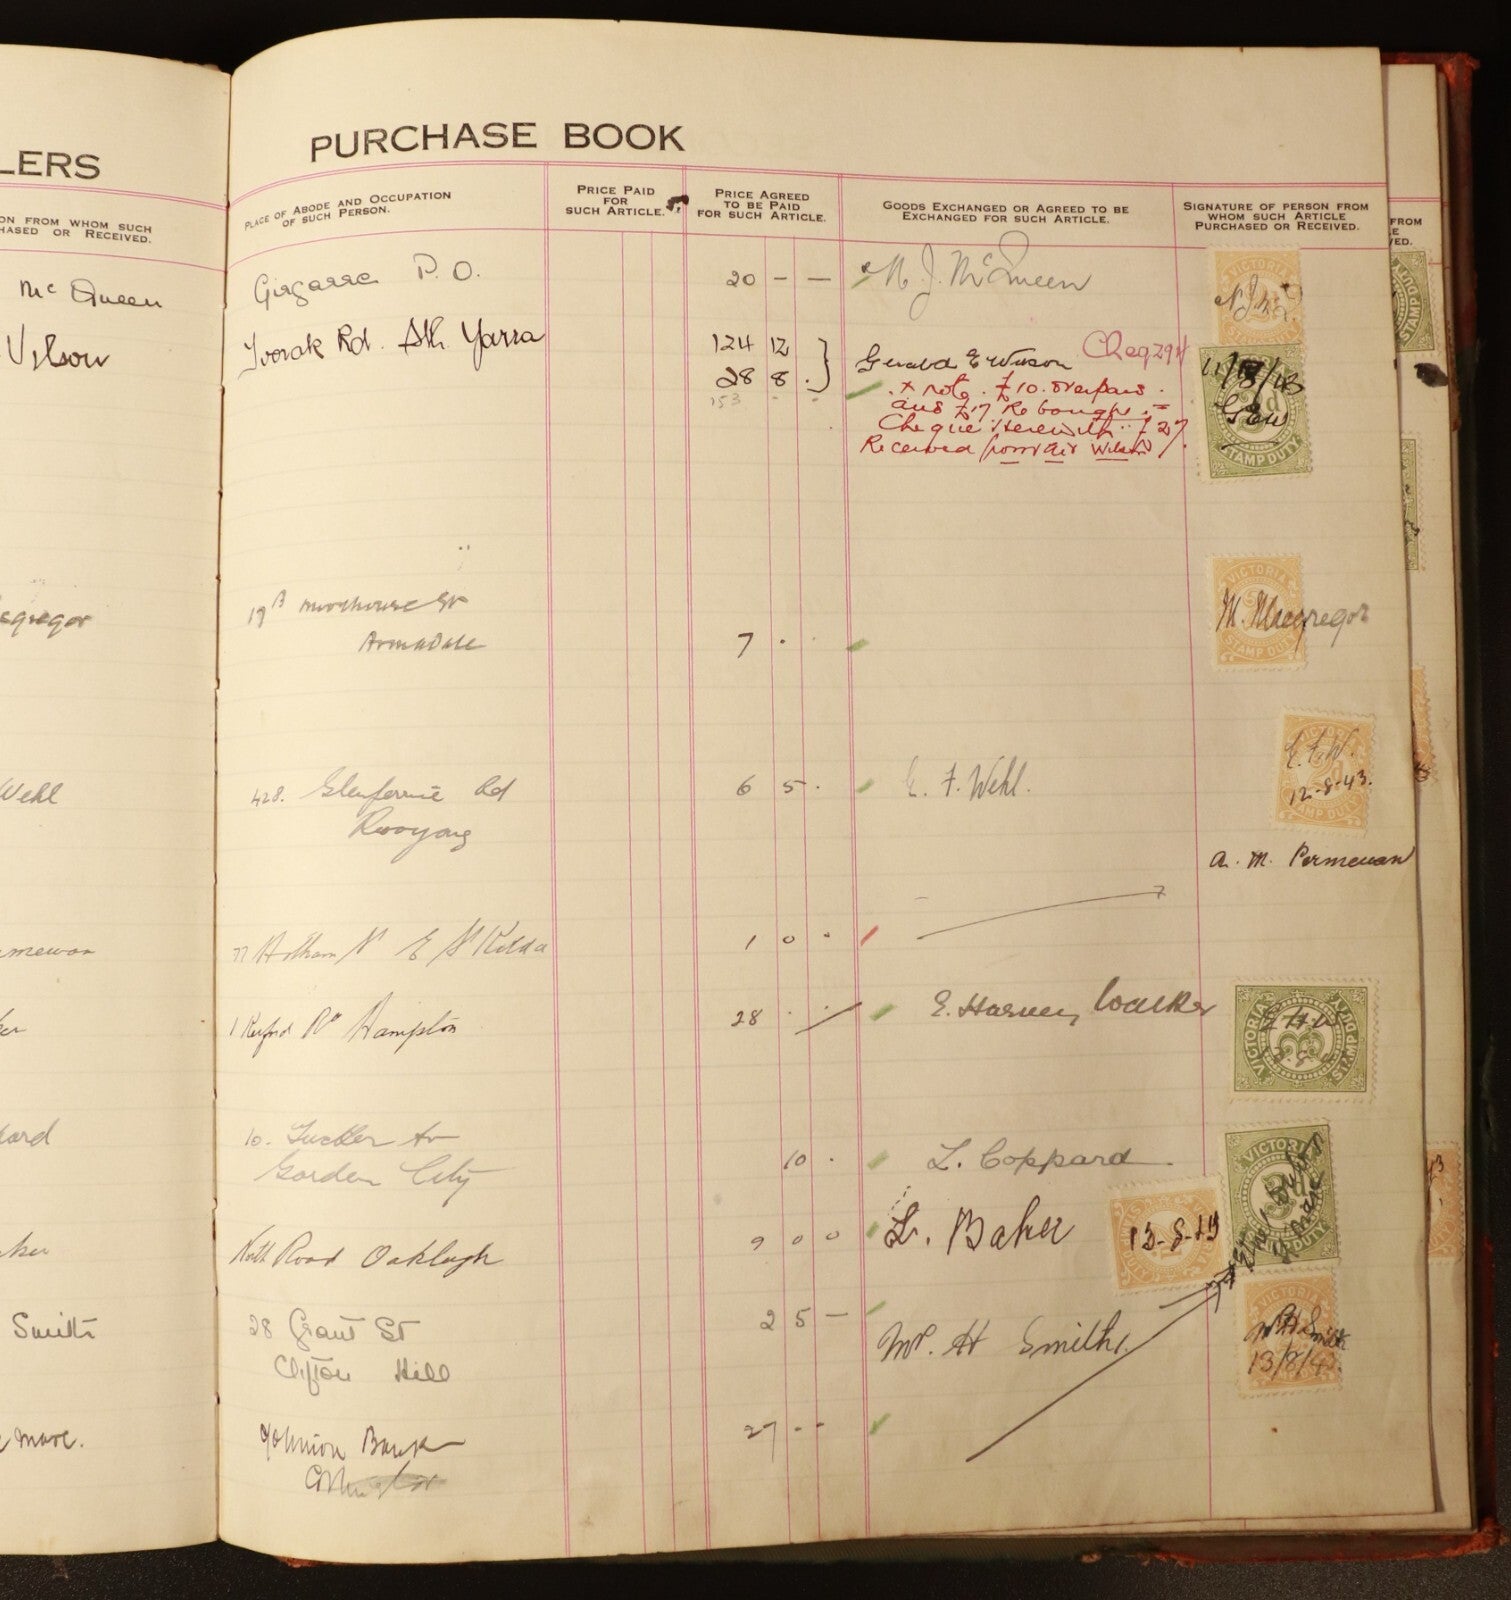 LERS
PURCHASE BOOK
ON FROM WHOM SUCH
HASED OR RECEIVED.
PLACE OF ABODE AND OCCUPATION
OF SUCH PERSON.
PRICE PAID
FOR
SUCH ARTICLE.
PRICE AGREED
TO BE PAID
FOR SUCH ARTICLE.
GOODS EXCHANGED OR AGREED TO BE
EXCHANGED FOR SUCH ARTICLE.
SIGNATURE OF PERSON FROM
WHOM SUCH ARTICLE
PURCHASED OR RECEIVED.
FROM
VED.
Mc Queen
Girgarre P.O.
20 - —
N. J. McQueen
VICTORIA
Wilson
Toorak Rd. Sth Yarra
124 12
28 8 .
153 - -
Gerald E Wilson
Cheq 294
x note . £10. overpaid .
and £17 Re bought . =
Cheque Herewith : £27
Received from Mr Wilson
11/8/43
GEW
STAMP DUTY
STAMP DUTY
cgregor
19B
St
Armadale
7 . .
VICTORIA
M. Macgregor
STAMP DUTY
Wehl
428. Glenferrie Rd
Kooyong
6 5 .
E. F. Wehl.
VICTORIA
E.F.W.
12-8-43.
STAMP DUTY
A. M. Permewan
mewan
77 Hotham St E St Kilda
1 0 .
Hampton
28 . .
E. Harvey Walker
VICTORIA
STAMP DUTY
EHW
3D
pard
10. Tucker Av
Garden City
10 .
L. Coppard
VICTORIA
3d
STAMP DUTY
ker
North Road Oakleigh
9 0 0
L. Baker
13-8-43
Smith
28 Grant St
Clifton Hill
25 —
Mr. H Smith.
VICTORIA
Mr H Smith
13/8/43.
more.
Union Bank
27 - -